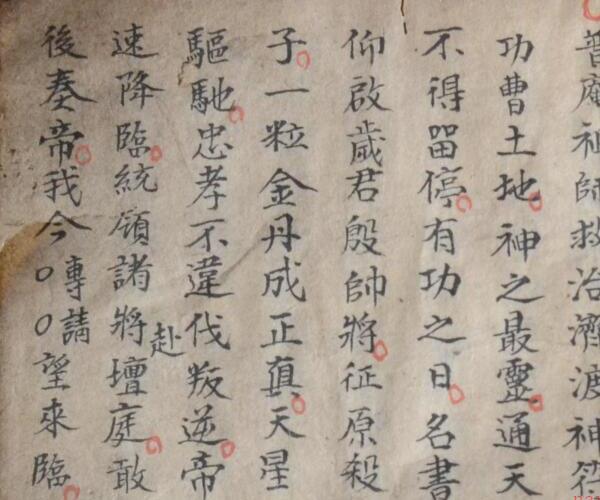 普庵祖師救治濟渡神符
功曹土地神之最靈通天
不得畄停有功之日名書
仰啟歲君殷帥將征原殺
子一粒金丹成正真天星
驅馳忠孝不違伐叛逆帝
速降臨統領諸將赴壇庭敢
後奏帝我今〇〇專請望來臨